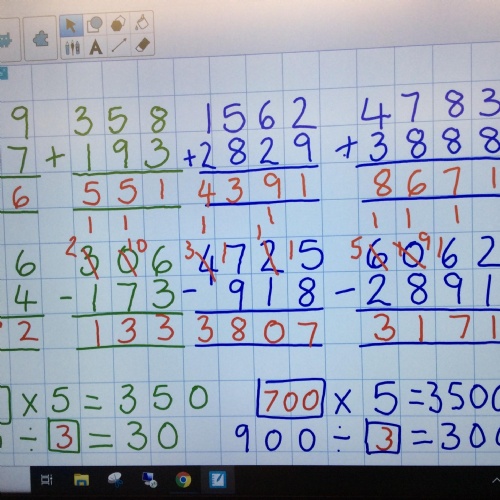 9 358 1562 4783
7 +193 +2829 +3888
6 551 4391 8671
1 1 1 1 1 1 1
6 2 3 10 0 6 3 4 1 7 1 2 1 5 5 6 10 0 9 1 6 2
4 -173 -918 -2891
2 133 3807 3171
× 5 = 350 700 × 5 = 3500
÷ 3 = 30 900 ÷ 3 = 300